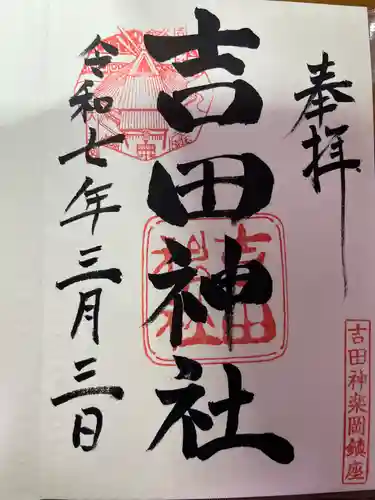 奉拝
吉田神社
令和七年三月三日
吉田神楽岡鎮座